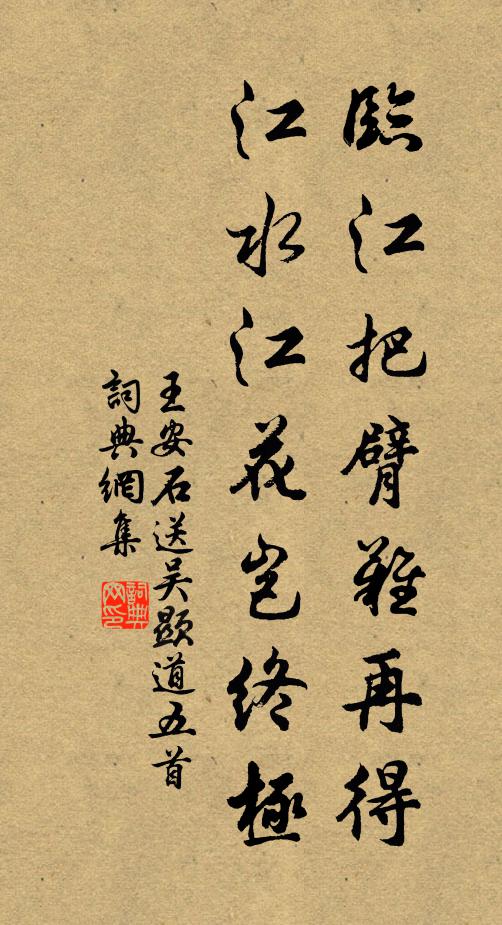 臨江把臂難再得
江水江花豈終極
王安石送吴顯道五首
詞典網集
詞典网印